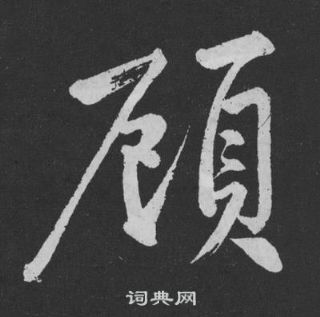 顾
词典网